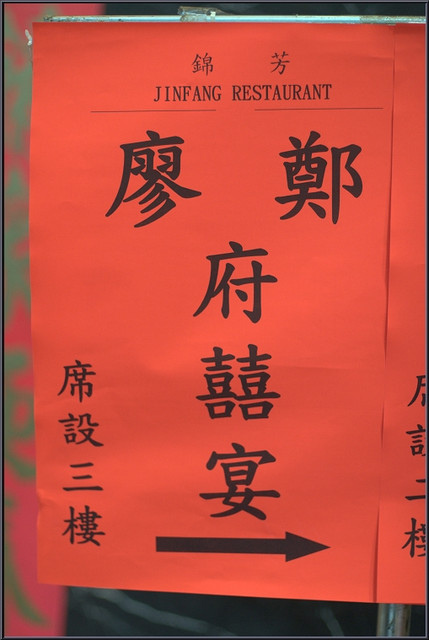 錦 芳
JINFANG RESTAURANT
廖 鄭
府
囍
宴
席設三樓